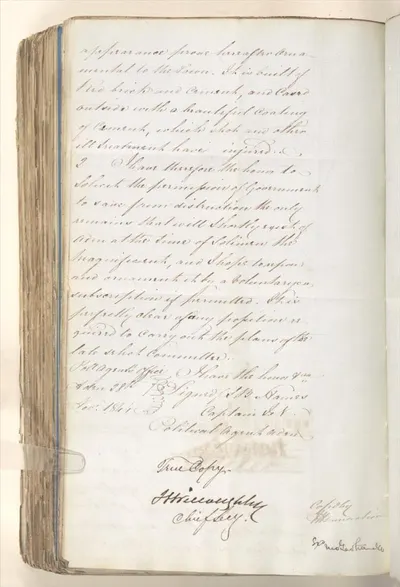 appearance prove hereafter orna-
mental to the Town. It is built of
Red brick and Cement, and Cased
outside with a beautiful Coating
of Cement, which shot and other
ill treatment have injured.
2 I have therefore the honor to
Solicit the permission of Government
to save from distruction the only
remains that will shortly exist of
Aden at the time of Soliman the
Magnificent, and I hope to repair
and ornament it by a Voluntary
subscription if permitted. It is
perfectly clear of any position re
quired to carry out the plans of the
late select Committee.
Pol Agents Office I have the honor &ca
Aden 28th Signed / S B Haines
Captain I. N.
Political Agent Aden
True Copy
J P Willoughby
Chief Secy.
Copd by